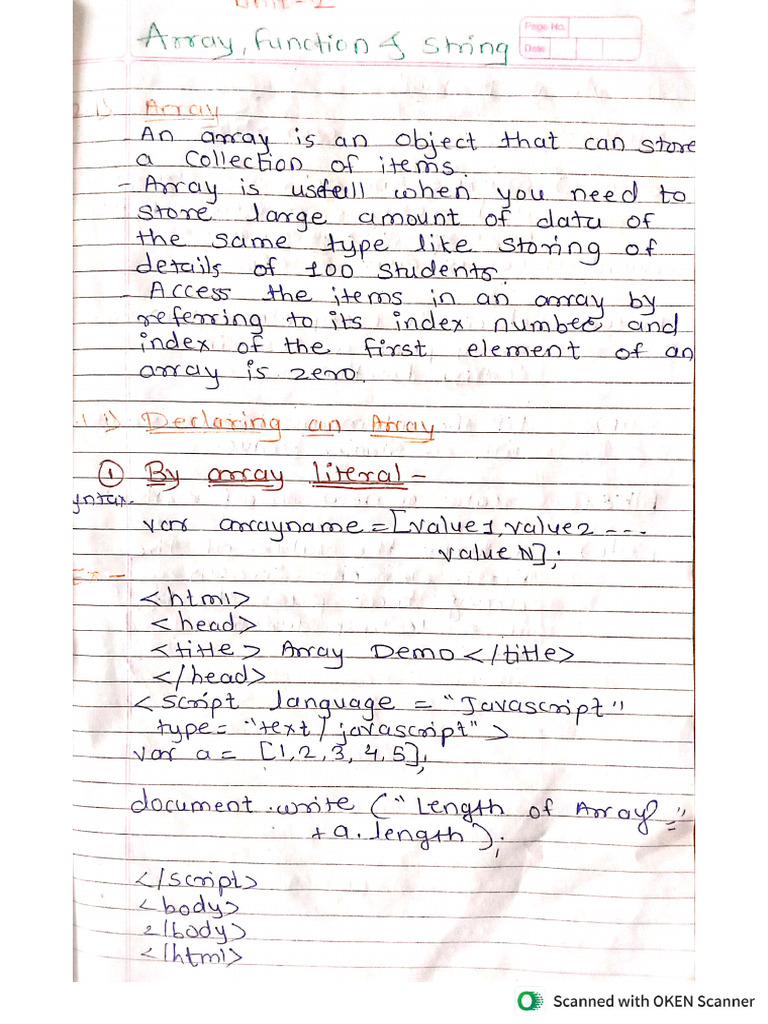 Unit - 2
Array, Function & String
Page No.
Date
2.1) Array
An array is an object that can store
a collection of items.
- Array is usefull when you need to
store large amount of data of
the same type like storing of
details of 100 students.
- Access the items in an array by
referring to its index number and
index of the first element of an
array is zero.
1.1) Declaring an Array
① By array literal -
yntax-
var arrayname = [value1, value2 ---
value N];
Ex -
<html>
<head>
<title> Array Demo </title>
</head>
<script language = "Javascript"
type = "text/javascript">
var a = [1, 2, 3, 4, 5];
document.write ("Length of Array ="
+ a.length);
</script>
<body>
</body>
</html>
Scanned with OKEN Scanner